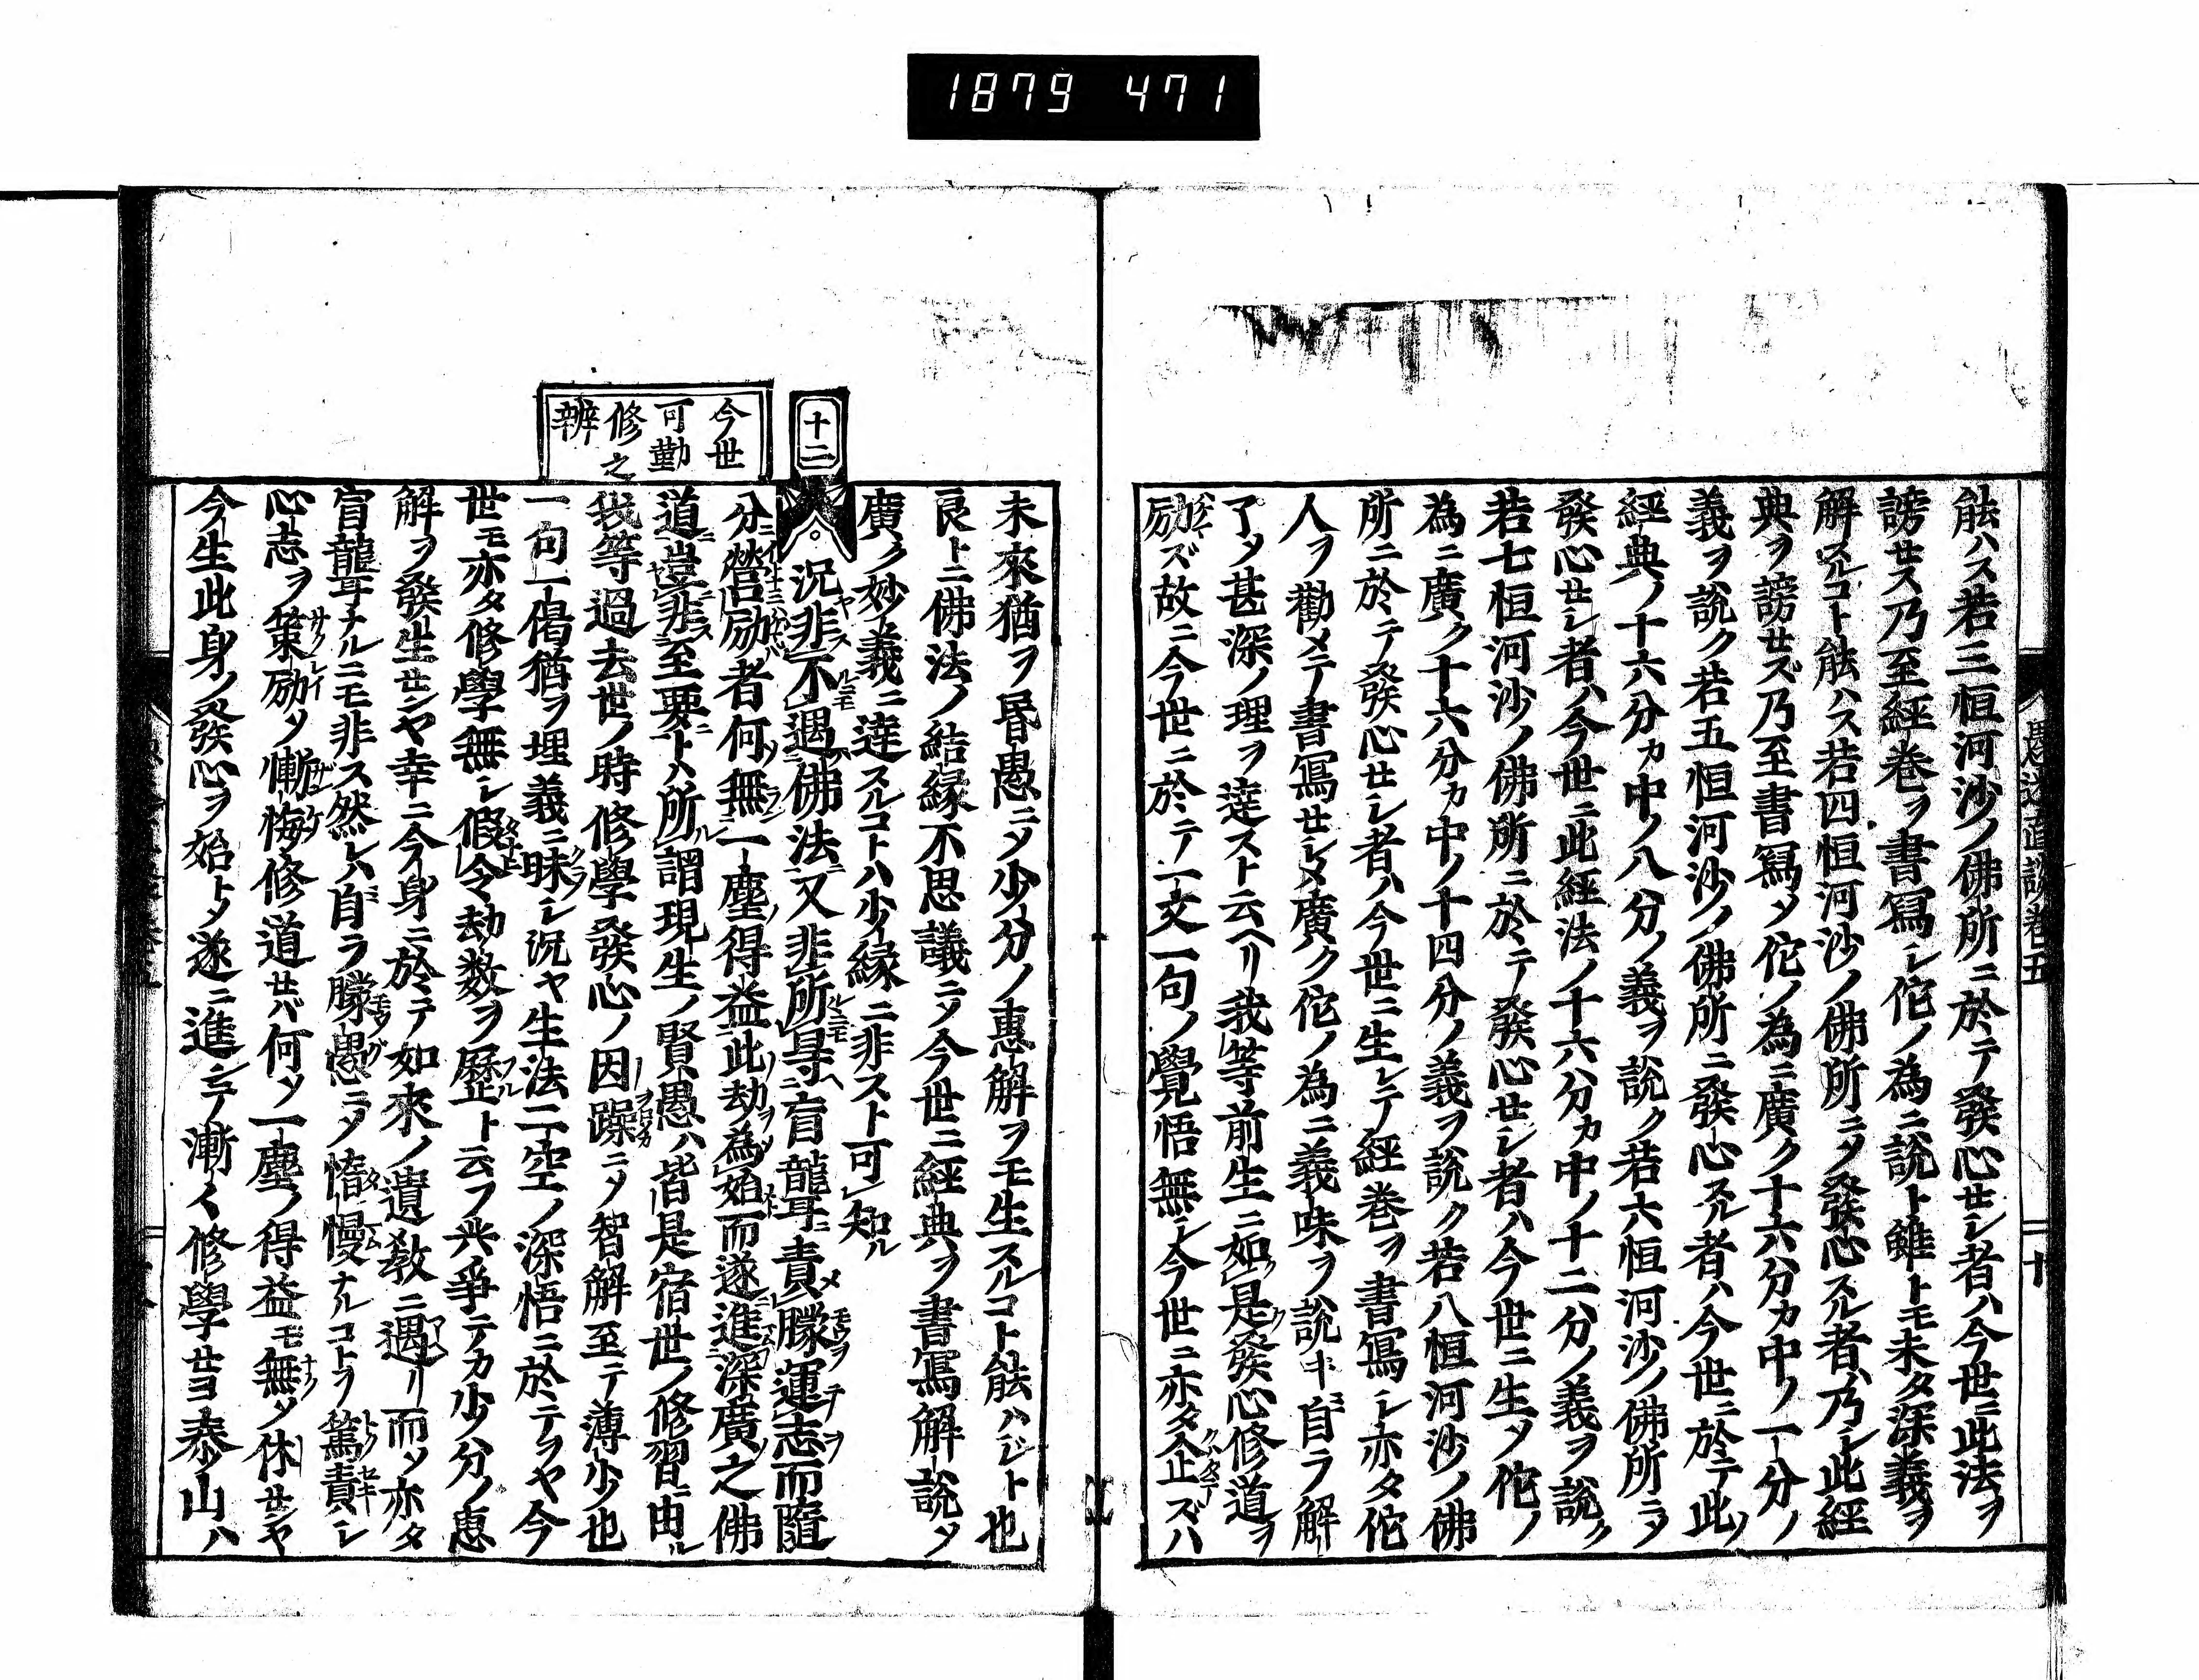 1879 471
能ハス若三恒河沙ノ佛所ニ於テ發心セシ者ハ今世ニ此法ヲ
謗セス乃至經卷ヲ書寫シ佗ノ為ニ說ト雖トモ未タ深義ヲ
解スルコト能ハス若四恒河沙ノ佛所ニメ發心スル者ハ乃シ此經
典ヲ謗セズ乃至書寫メ佗ノ為ニ廣ク十六分カ中ノ一分ノ
義ヲ說ク若五恒河沙ノ佛所ニ發心スル者ハ今世ニ於テ此ノ
經典ノ十六分カ中ノ八分ノ義ヲ說ク若六恒河沙ノ佛所ニメ
發心セシ者ハ今世ニ此經法ノ十六分カ中ノ十二分ノ義ヲ說ク
若七恒河沙ノ佛所ニ於テ發心セシ者ハ今世ニ生メ佗ノ
為ニ廣ク十六分カ中ノ十四分ノ義ヲ說ク若八恒河沙ノ佛
所ニ於テ發心セシ者ハ今世ニ生レテ經卷ヲ書寫シ亦タ佗
人ヲ勸メテ書寫セシメ廣ク佗ノ為ニ義味ヲ說キ自ラ解
了メ甚深ノ理ヲ達スト云ヘリ我等前生ニ如是發心修道ヲ
励ズ故ニ今世ニ於テ一文一句ノ覺悟無シ今世ニ亦タ企ズハ
未來猶ヲ昬愚ニメ少分ノ惠解ヲモ生スルコト能ハジト也
良トニ佛法ノ結緣不思議ニメ今世ニ經典ヲ書寫解說メ
廣ク妙義ニ達スルコトハ少緣ニ非スト可知ル
十二
今世
可勤
修之
辨
況非不遇佛法又非所尋盲聾責朦運志而隨
分營励者何無一塵得益此劫為始而遂進深廣之佛
道豈非至要トハ所謂現生ノ賢愚ハ皆是宿世ノ修習ニ由ル
我等過去世ノ時修學發心ノ因躁ニメ智解至テ薄少也
一句一偈猶ヲ埋義ニ昧シ況ヤ生法二空ノ深悟ニ於テヲヤ今
世モ亦タ修學無シ假令劫数ヲ歷ト云フ共爭テカ少分ノ惠
解ヲ發生センヤ幸ニ今身ニ於テ如來ノ遺敎ニ遇リ而メ亦タ
盲聾ナルニモ非ス然レハ自ラ朦愚ニメ惰慢ナルコトヲ篤責シ
心志ヲ策励メ慚悔修道セバ何ソ一塵ノ得益モ無メ休センヤ
今生此身ノ發心ヲ始トメ遂ニ進ンテ漸ク修學セヨ泰山ハ